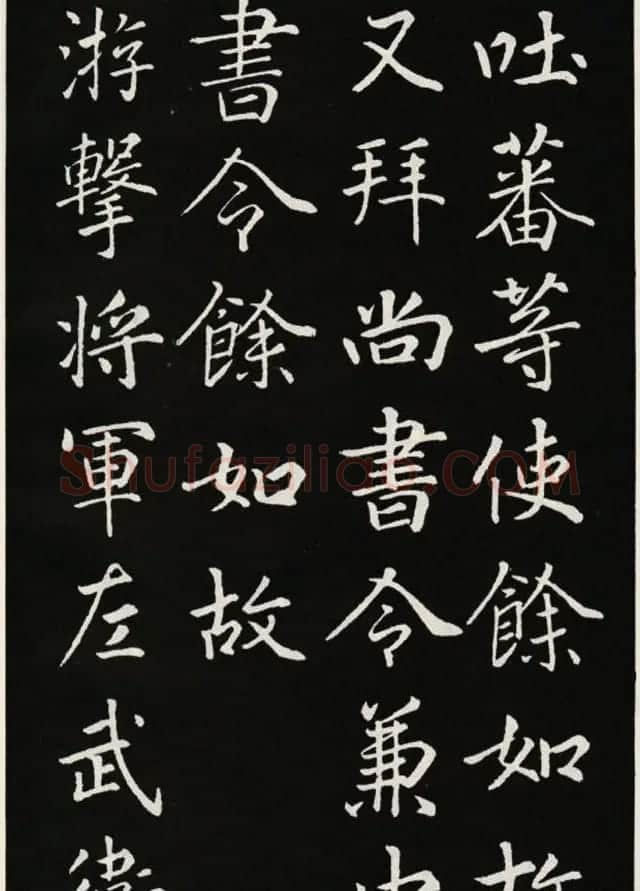 吐蕃等使餘如故
又拜尚書令兼中
書令餘如故
游擊将軍左武衛
Shufaziliao.COM